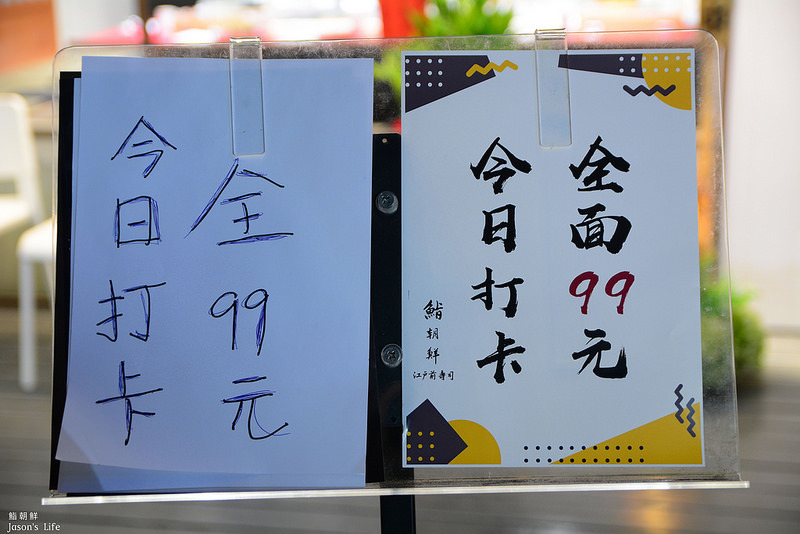 全99元
今日打卡
全面99元
今日打卡
鮨朝鮮
江戶前壽司
鮨朝鮮
Jason's Life